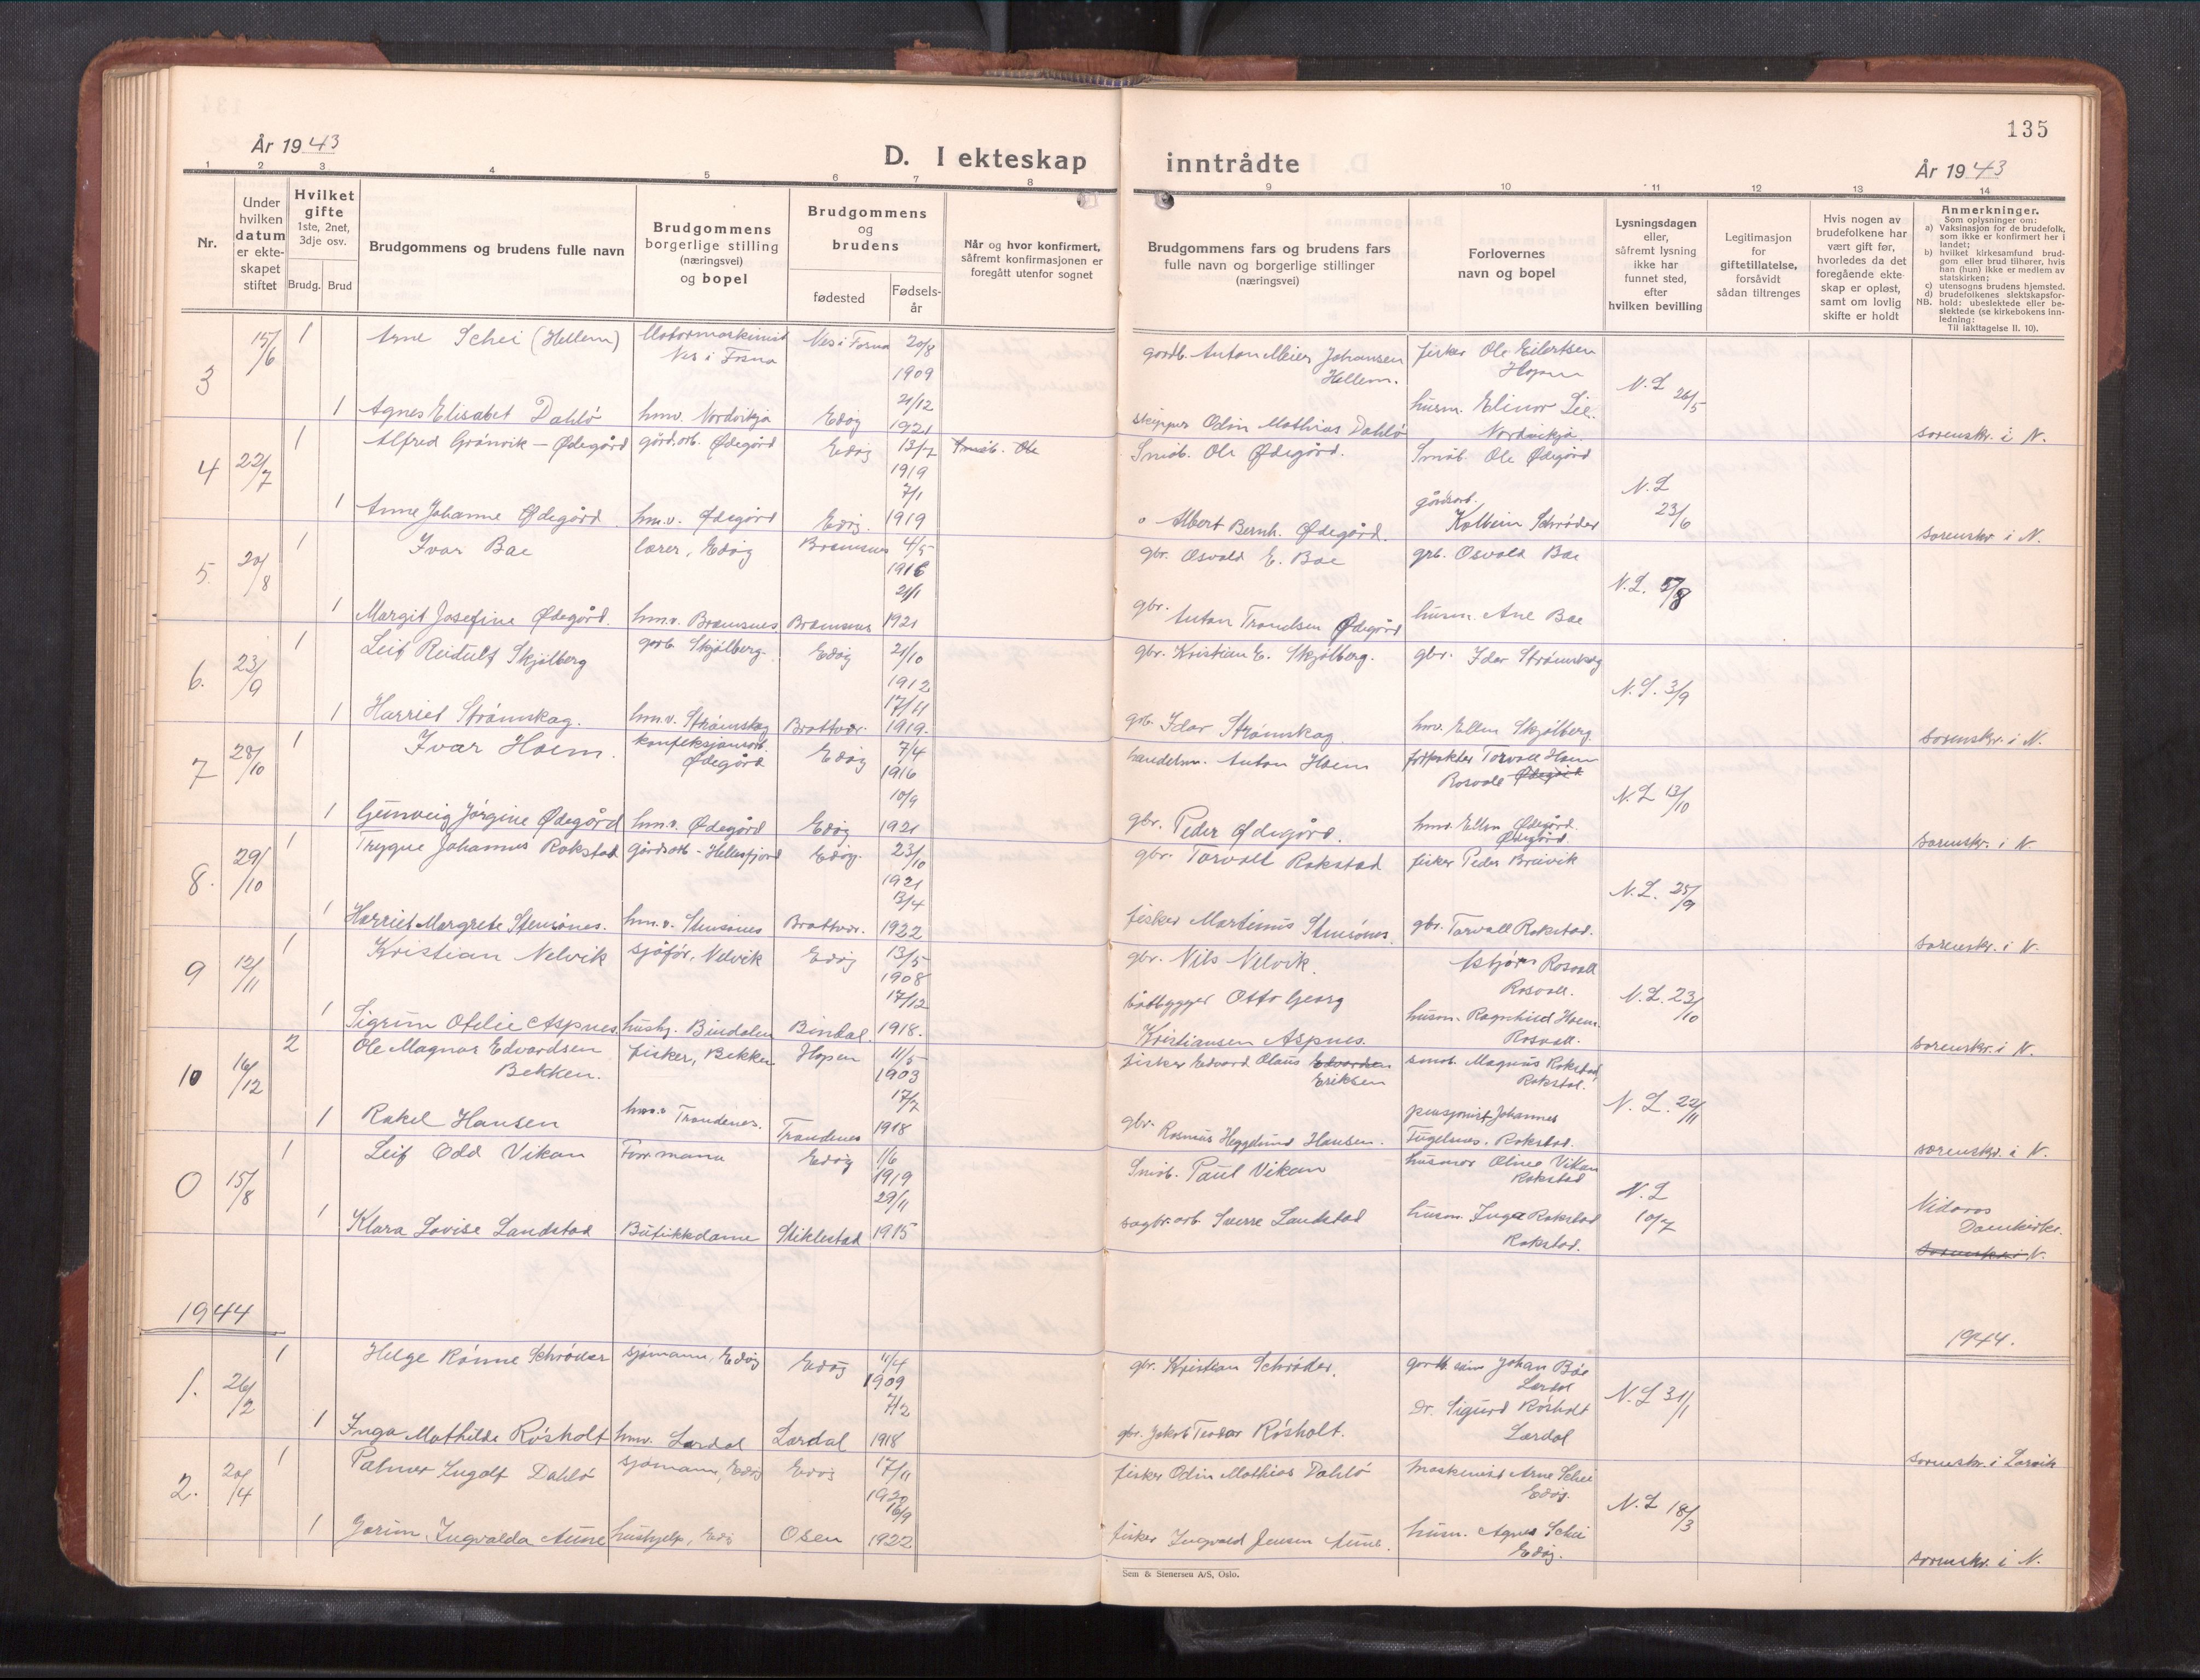 135
År 1943
D. I ekteskap inntrådte
År 1943
1 2 3 4 5 6 7 8 9 10 11 12 13 14
Nr.
Under hvilken datum er ekteskapet stiftet
Hvilket gifte 1ste, 2net, 3dje osv.
Brudg. Brud
Brudgommens og brudens fulle navn
Brudgommens borgerlige stilling (næringsvei) og bopel
Brudgommens og brudens
fødested
Fødselsår
Når og hvor konfirmert, såfremt konfirmasjonen er foregått utenfor sognet
Brudgommens fars og brudens fars fulle navn og borgerlige stillinger (næringsvei)
Forlovernes navn og bopel
Lysningsdagen eller, såfremt lysning ikke har funnet sted, efter hvilken bevilling
Legitimasjon for giftetillatelse, forsåvidt sådan tiltrenges
Hvis nogen av brudefolkene har vært gift før, hvorledes da det foregående ekteskap er opløst, samt om lovlig skifte er holdt
Anmerkninger.
Som oplysninger om:
a) Vaksinasjon for de brudefolk, som ikke er konfirmert her i landet;
b) hvilket kirkesamfund brudgom eller brud tilhører, hvis han (hun) ikke er medlem av statskirken;
c) utensogns brudens hjemsted.
d) brudefolkenes slektskapsforhold: ubeslektede eller beslektede (se kirkebokens innledning:
NB. Til iakttagelse II. 10).
3 15/6 1 Arne Schei (Hellem) Motormaskinist Nes i Fosna Nes i Fosna 20/8 1909 gårdb. Anton Meier Johansen Hellem. fisker Ole Eilertsen Hopen N.L 26/5
1 Agnes Elisabet Dahlö hmv. Nordvikja Edöy 21/12 1921 skipper Odin Mathias Dahlö husm. Elinor Lie. Nordvikja. sorenskr. i N.
4 22/7 1 Alfred Grönvik - Ødegård gård.arb. Ødegård Edöy 13/7 1919 Småb. Ole Småb. Ole Ødegård. Småb. Ole Ødegård N.L 23/6
1 Anne Johanne Ødegård hm.v. Ødegård Edöy. 7/1 1919 Albert Bernh. Ødegård. gårdsarb. Kolbein Schrøder sorenskr i N.
5. 20/8 1 Ivar Bae lærer, Edöy Bremsnes 4/5 1916 gbr. Osvald E. Bae grb. Osvald Bae N.L. 5/8
1 Margit Josefine Ødegård. hm.v. Bremsnes Bremsnes 21/1 1921 gbr. Anton Trondsen Ødegård husm. Ane Bae
6. 23/9 1 Leif Reidulf Skjölberg garb. Skjölberg. Edöy 21/10 1912 gbr. Kristian E. Skjölberg. gbr. Idar Strömskag N.L. 3/9
1 Harriet Strömskag. hm.v. Strömskag Brattvær. 17/11 1919. grb. Idar Strömskag hmv. Ellen Skjölberg. sorenskr. i N.
7 28/10 1 Ivar Hoem. konfeksjonsarb. Ødegård Edöy 7/4 1916 handelsm. Anton Hoem forpakter Torvall Hoem Rosvoll Ødegård N.L 13/10
1 Gunveig Jörgine Ødegård hm.v. Ødegård Edöy 10/9 1921 gbr. Peder Ødegård. hmv. Ellen Ødegård. Ødegård. sorenskr. i N.
8. 29/10 1 Trygve Johannes Rokstad gårdsarb - Hellesfjord Edöy. 23/10 1921 gbr. Torvall Rokstad fisker Peder Breivik N.L. 25/9
1 Harriet Margrete Stensönes. hm.v. Stensönes Brattvær. 13/4 1922 fisker Martinus Stensönes. gbr. Torvall Rokstad. sorenskr. i N.
9 12/11 1 Kristian Nelvik sjåför, Nelvik Edöy 13/5 1908 gbr. Nils Nelvik. Asbjörn Rosvoll Rosvoll. N.L. 23/10
1 Sigrun Ofelie Aspnes. hushj. Bindalen Bindal. 17/12 1918. båtbygger Otto Georg Kristiansen Aspnes. husm. Ragnhild Hoem. Rosvoll. sorenskr. i N.
10 16/12 2 Ole Magnar Edvardsen Bekken. fisker, Bekken Hopen 11/5 1903 fisker Edvard Olaus Edvardsen Eriksen småb. Magnus Rokstad Rokstad. N.L. 22/11
1 Rakel Hansen hm.v Trondenes. Trondenes 17/7 1918 gbr. Rasmus Heggelund Hansen. pensjonist Johannes Fugelsnes. Rokstad. sorenskr. i N.
0 15/8 1 Leif Odd Vikan Formann Edöy 1/6 1919 Småb. Paul Vikan husmor Oline Vikan Rokstad N.L 10/7
1 Klara Lovise Landstad Butikkdame Stiklestad 29/11 1915 sagbr.arb Sverre Landstad husm. Inga Rokstad Rokstad. Nidaros Domkirke. sorenskr. i N.
1944
1944.
1. 26/2 1 Helge Rönne Schröder sjömann, Edöy Edöy 11/4 1909 gbr. Kristian Schröder. Johan Böe Lardal N.L 31/1
1 Inga Mathilde Rösholt hmv. Lardal Lardal 7/2 1918 gbr. Jakob Teodor Rösholt. Dr. Sigurd Rösholt Lardal sorenskr. i Larvik
2. 20/4 1 Palmer Ingolf Dahlö sjömann, Edöy Edöy 17/11 1920 fisker Odin Mathias Dahlö maskinist Arne Schei Edöy. N.L 18/3
1 Jorun Ingvalda Aune hushjelp, Edö Osen 16/9 1922 fisker Ingvald Jensen Aune. husm. Agnes Schei Edöy. sorenskr. i N.
Sem & Stenersen A/S, Oslo.